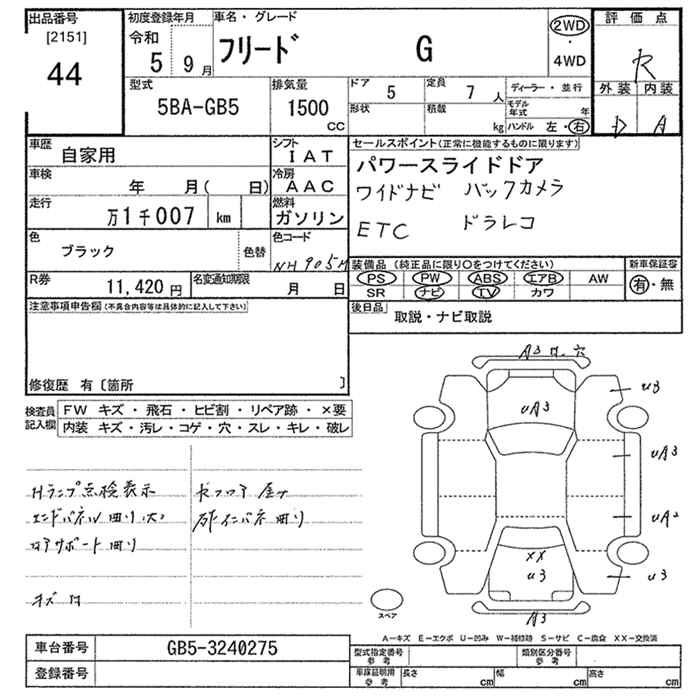 出品番号 初度登録年月 車名・グレード 評価点
[2151] 令和 フリード G 2WD
44 5 9月 ・ R
4WD
型式 排気量 ドア 5 定員 7人 ディーラー・並行 外装 内装
5BA-GB5 1500 CC 形状 積載 kg モデル年式 年 D A
ハンドル 左・右
車歴 自家用 シフト IAT セールスポイント(正常に機能するものに限ります)
車検 年 月( 日) 冷房 AAC パワースライドドア
走行 万1千007 km 燃料 ガソリン ワイドナビ バックカメラ
色 ブラック 色替 色コード NH905M ETC ドラレコ
装備品(純正品に限り〇をつけてください) 新車保証書
R券 11,420円 名変通知期限 月 日 PS PW ABS エアB AW 有・無
SR ナビ TV カワ
注意事項申告欄(不具合内容等は具体的に記入して下さい) 後日品 取説・ナビ取説
修復歴 有〔箇所 〕
検査員記入欄 FW キズ・飛石・ヒビ割・リペア跡・×要
内装 キズ・汚レ・コゲ・穴・スレ・キレ・破レ
A3 穴
u3
uA3
uA3
uA2
XX
u3
u3
A3
Hランプ点検表示
エンドパネル曲り
サポート曲り
フロア
インパネ曲り
キズ
スペア
A-キズ E-エクボ U-凹み W-補修跡 S-サビ C-腐食 XX-交換済
車台番号 GB5-3240275 型式指定番号 参考 類別区分番号 参考
登録番号 車庫証明用 参考 長さ cm 幅 cm 高さ cm